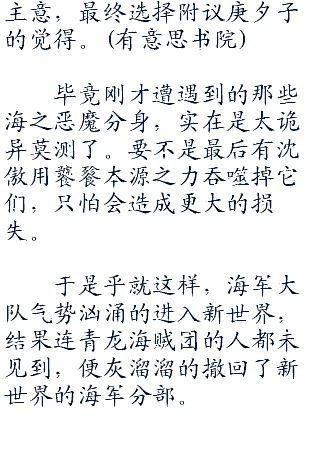 主意，最终选择附议庚夕子
的觉得。(有意思书院)
毕竟刚才遭遇到的那些
海之恶魔分身，实在是太诡
异莫测了。要不是最后有沈
傲用饕餮本源之力吞噬掉它
们，只怕会造成更大的损
失。
于是乎就这样，海军大
队气势汹涌的进入新世界，
结果连青龙海贼团的人都未
见到，便灰溜溜的撤回了新
世界的海军分部。